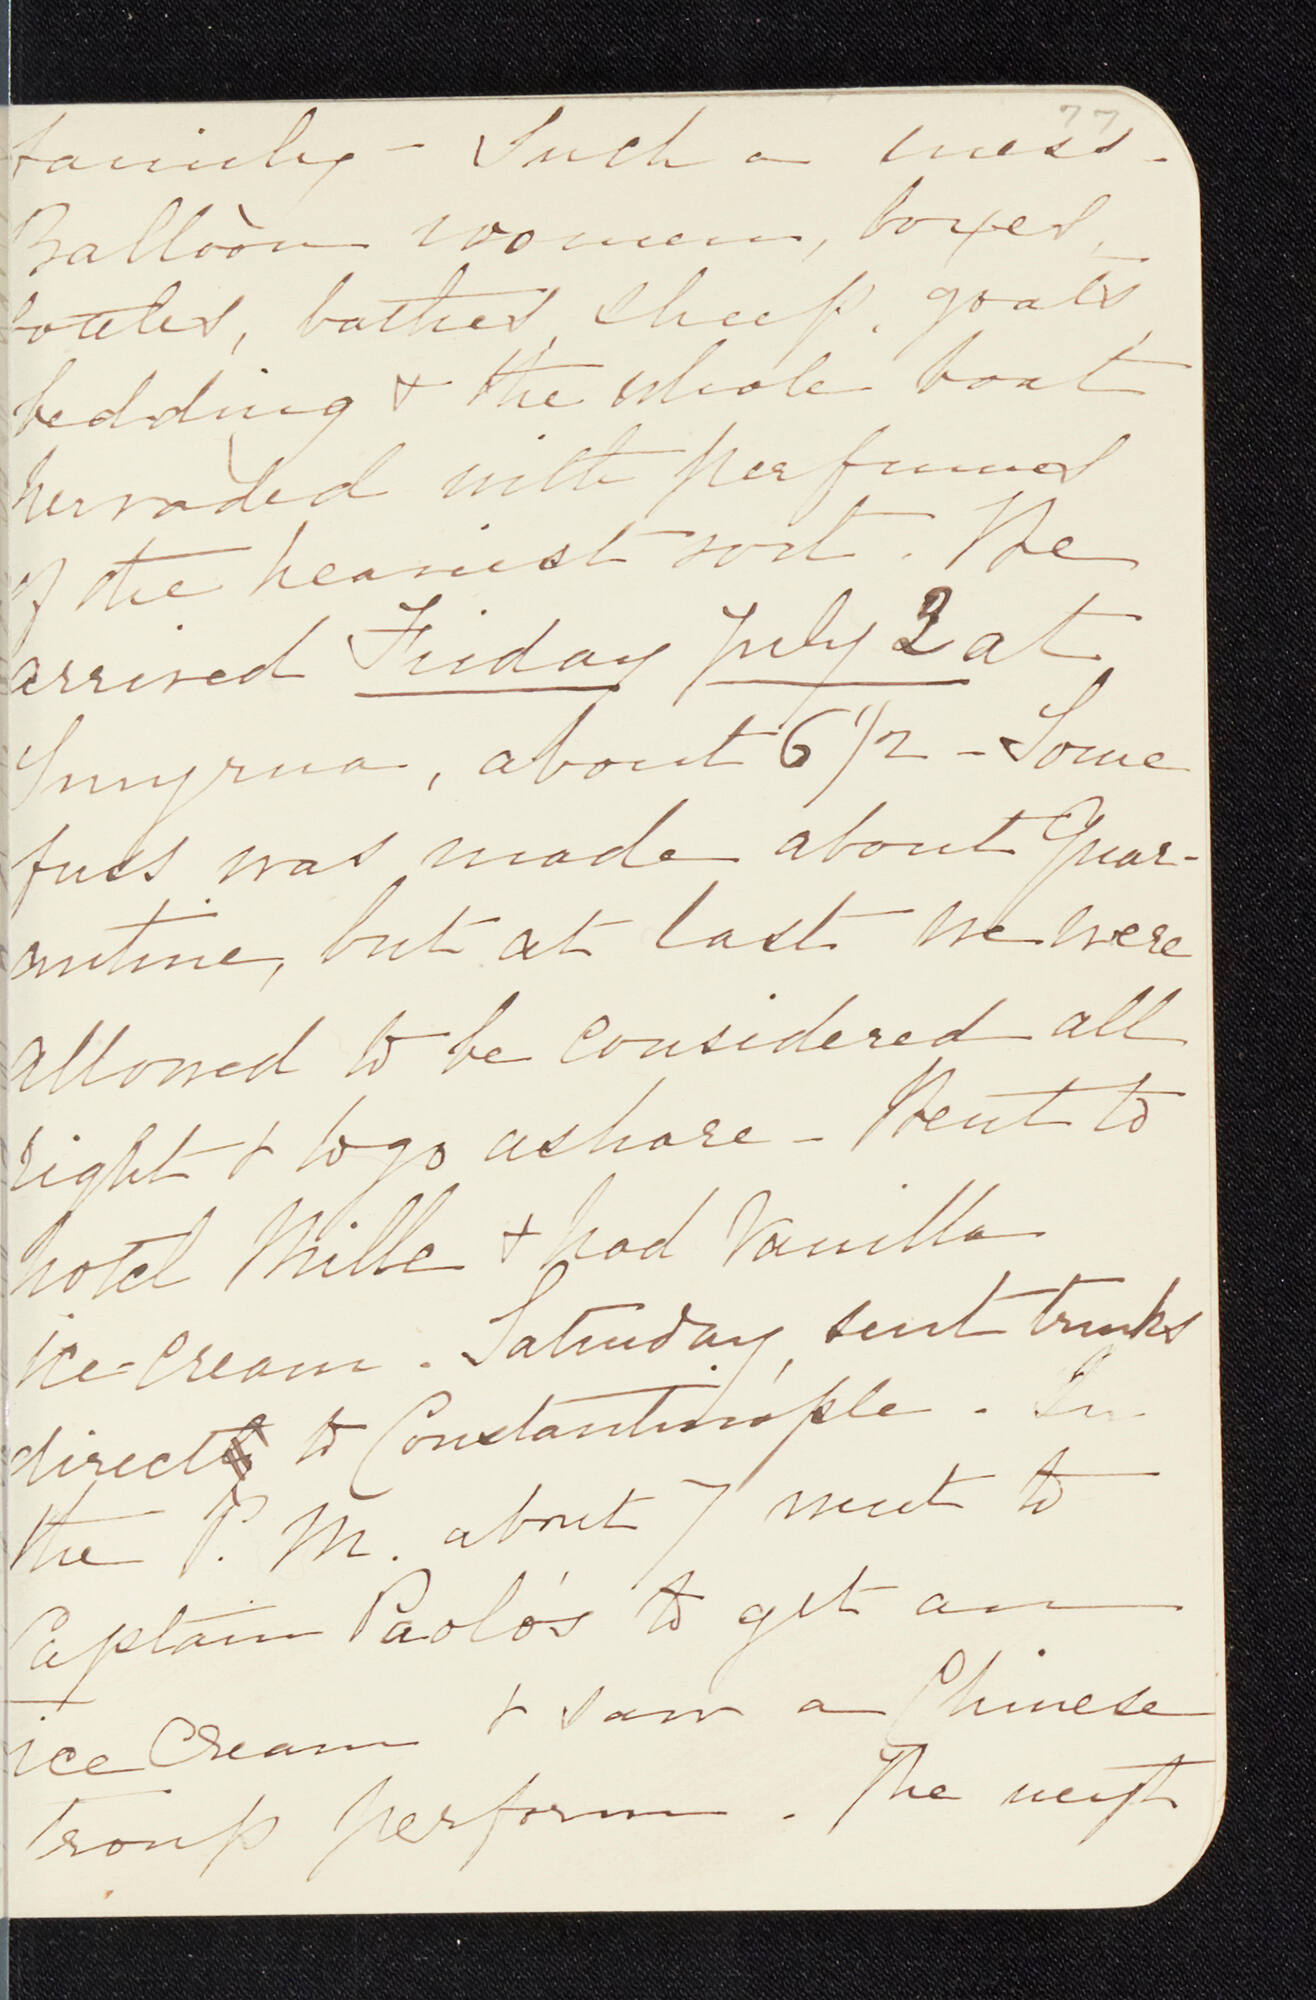 77
family - Such a mess -
Balloon women, boxes,
bottles, bathes, sheep, goats,
bedding & the whole boat
pervaded with perfumes
of the heaviest sort. We
arrived Friday July 2 at
Smyrna, about 6 1/2 - Some
fuss was made about Quar-
antine, but at last we were
allowed to be considered all
right & to go ashore - Went to
hotel Mille & had Vanilla
ice-cream. Saturday, sent trunks
direct to Constantinople. In
the P. M. about 7 went to
Captain Paolo's to get an
ice cream & saw a Chinese
Troup perform. The next